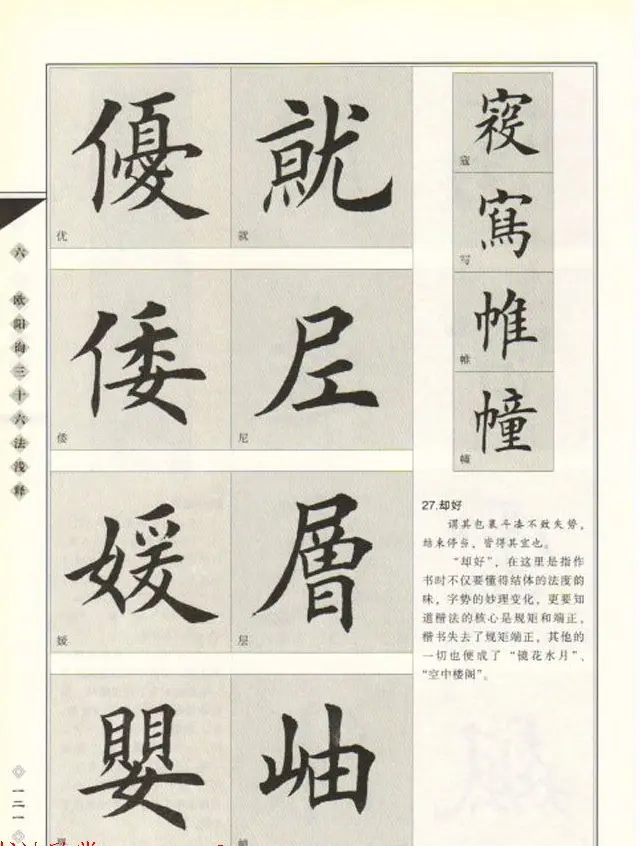 優
优
就
就
寇
寫
写
帷
帷
幢
幢
倭
倭
尼
媛
媛
層
层
嬰
岫
27.却好
谓其包裹斗凑不致失势，
结束停当，皆得其宜也。
“却好”，在这里是指作
书时不仅要懂得结体的法度韵
味，字势的妙理变化，更要知
道楷法的核心是规矩和端正，
楷书失去了规矩端正，其他的
一切也便成了“镜花水月”、
“空中楼阁”。
六 欧阳询三十六法浅释
一二一